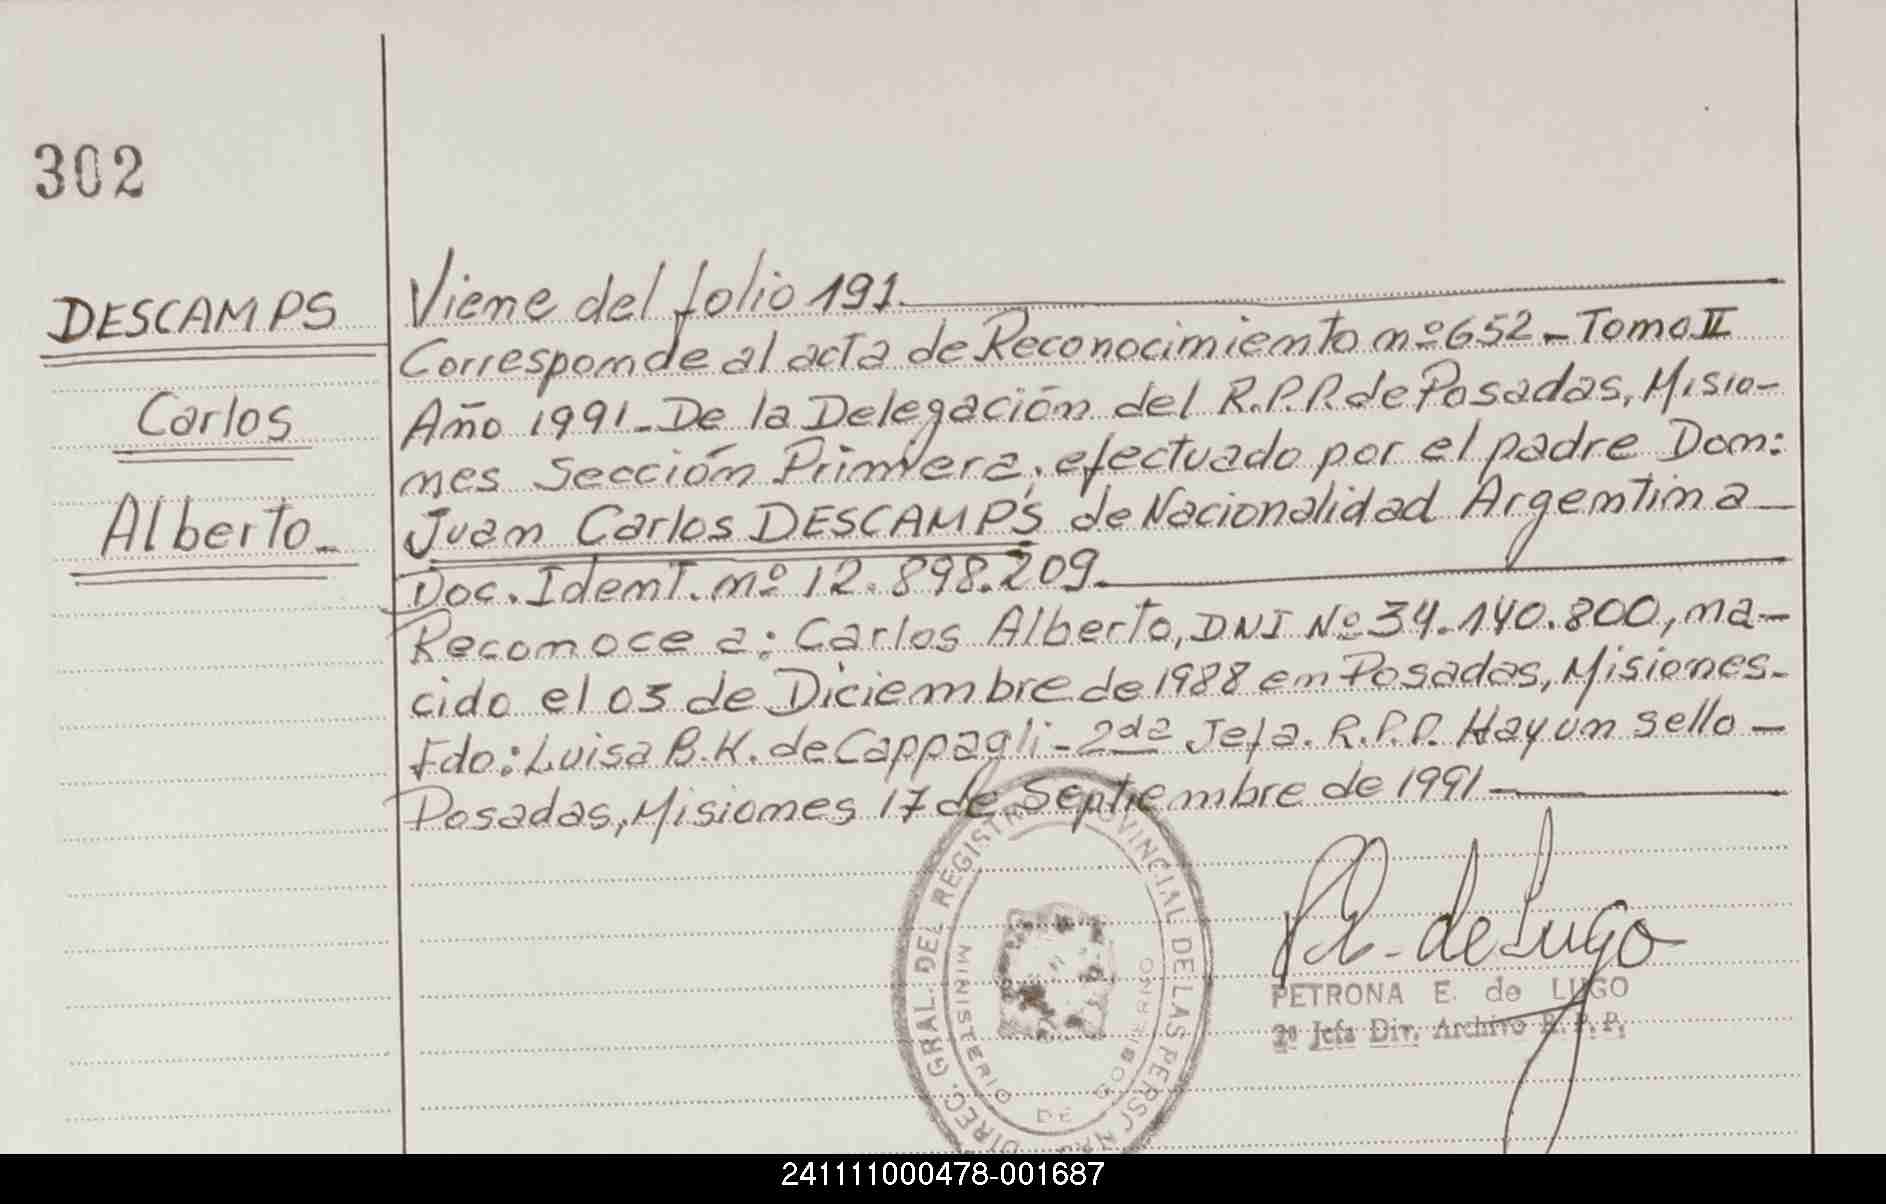 302
DESCAMPS
Carlos
Alberto_
Viene del folio 191.
Corresponde al acta de Reconocimiento nº 652 - Tomo II
Año 1991 - De la Delegación del R.P.P. de Posadas, Misio-
nes Sección Primera, efectuado por el padre Don:
Juan Carlos DESCAMPS de Nacionalidad Argentina
Doc. Ident. nº 12.898.209.
Reconoce a: Carlos Alberto, DNI Nº 34.140.800, na-
cido el 03 de Diciembre de 1988 en Posadas, Misiones.
Fdo: Luisa B.K. de Cappagli - 2da Jefa. R.P.P. Hay un sello -
Posadas, Misiones 17 de Septiembre de 1991 -
DIREC. GRAL. DEL REGISTRO PROVINCIAL DE LAS PERSONAS
MINISTERIO DE GOBIERNO
de Lugo
PETRONA E. de LUGO
2º Jefa Div. Archivo R.P.P.
241111000478-001687